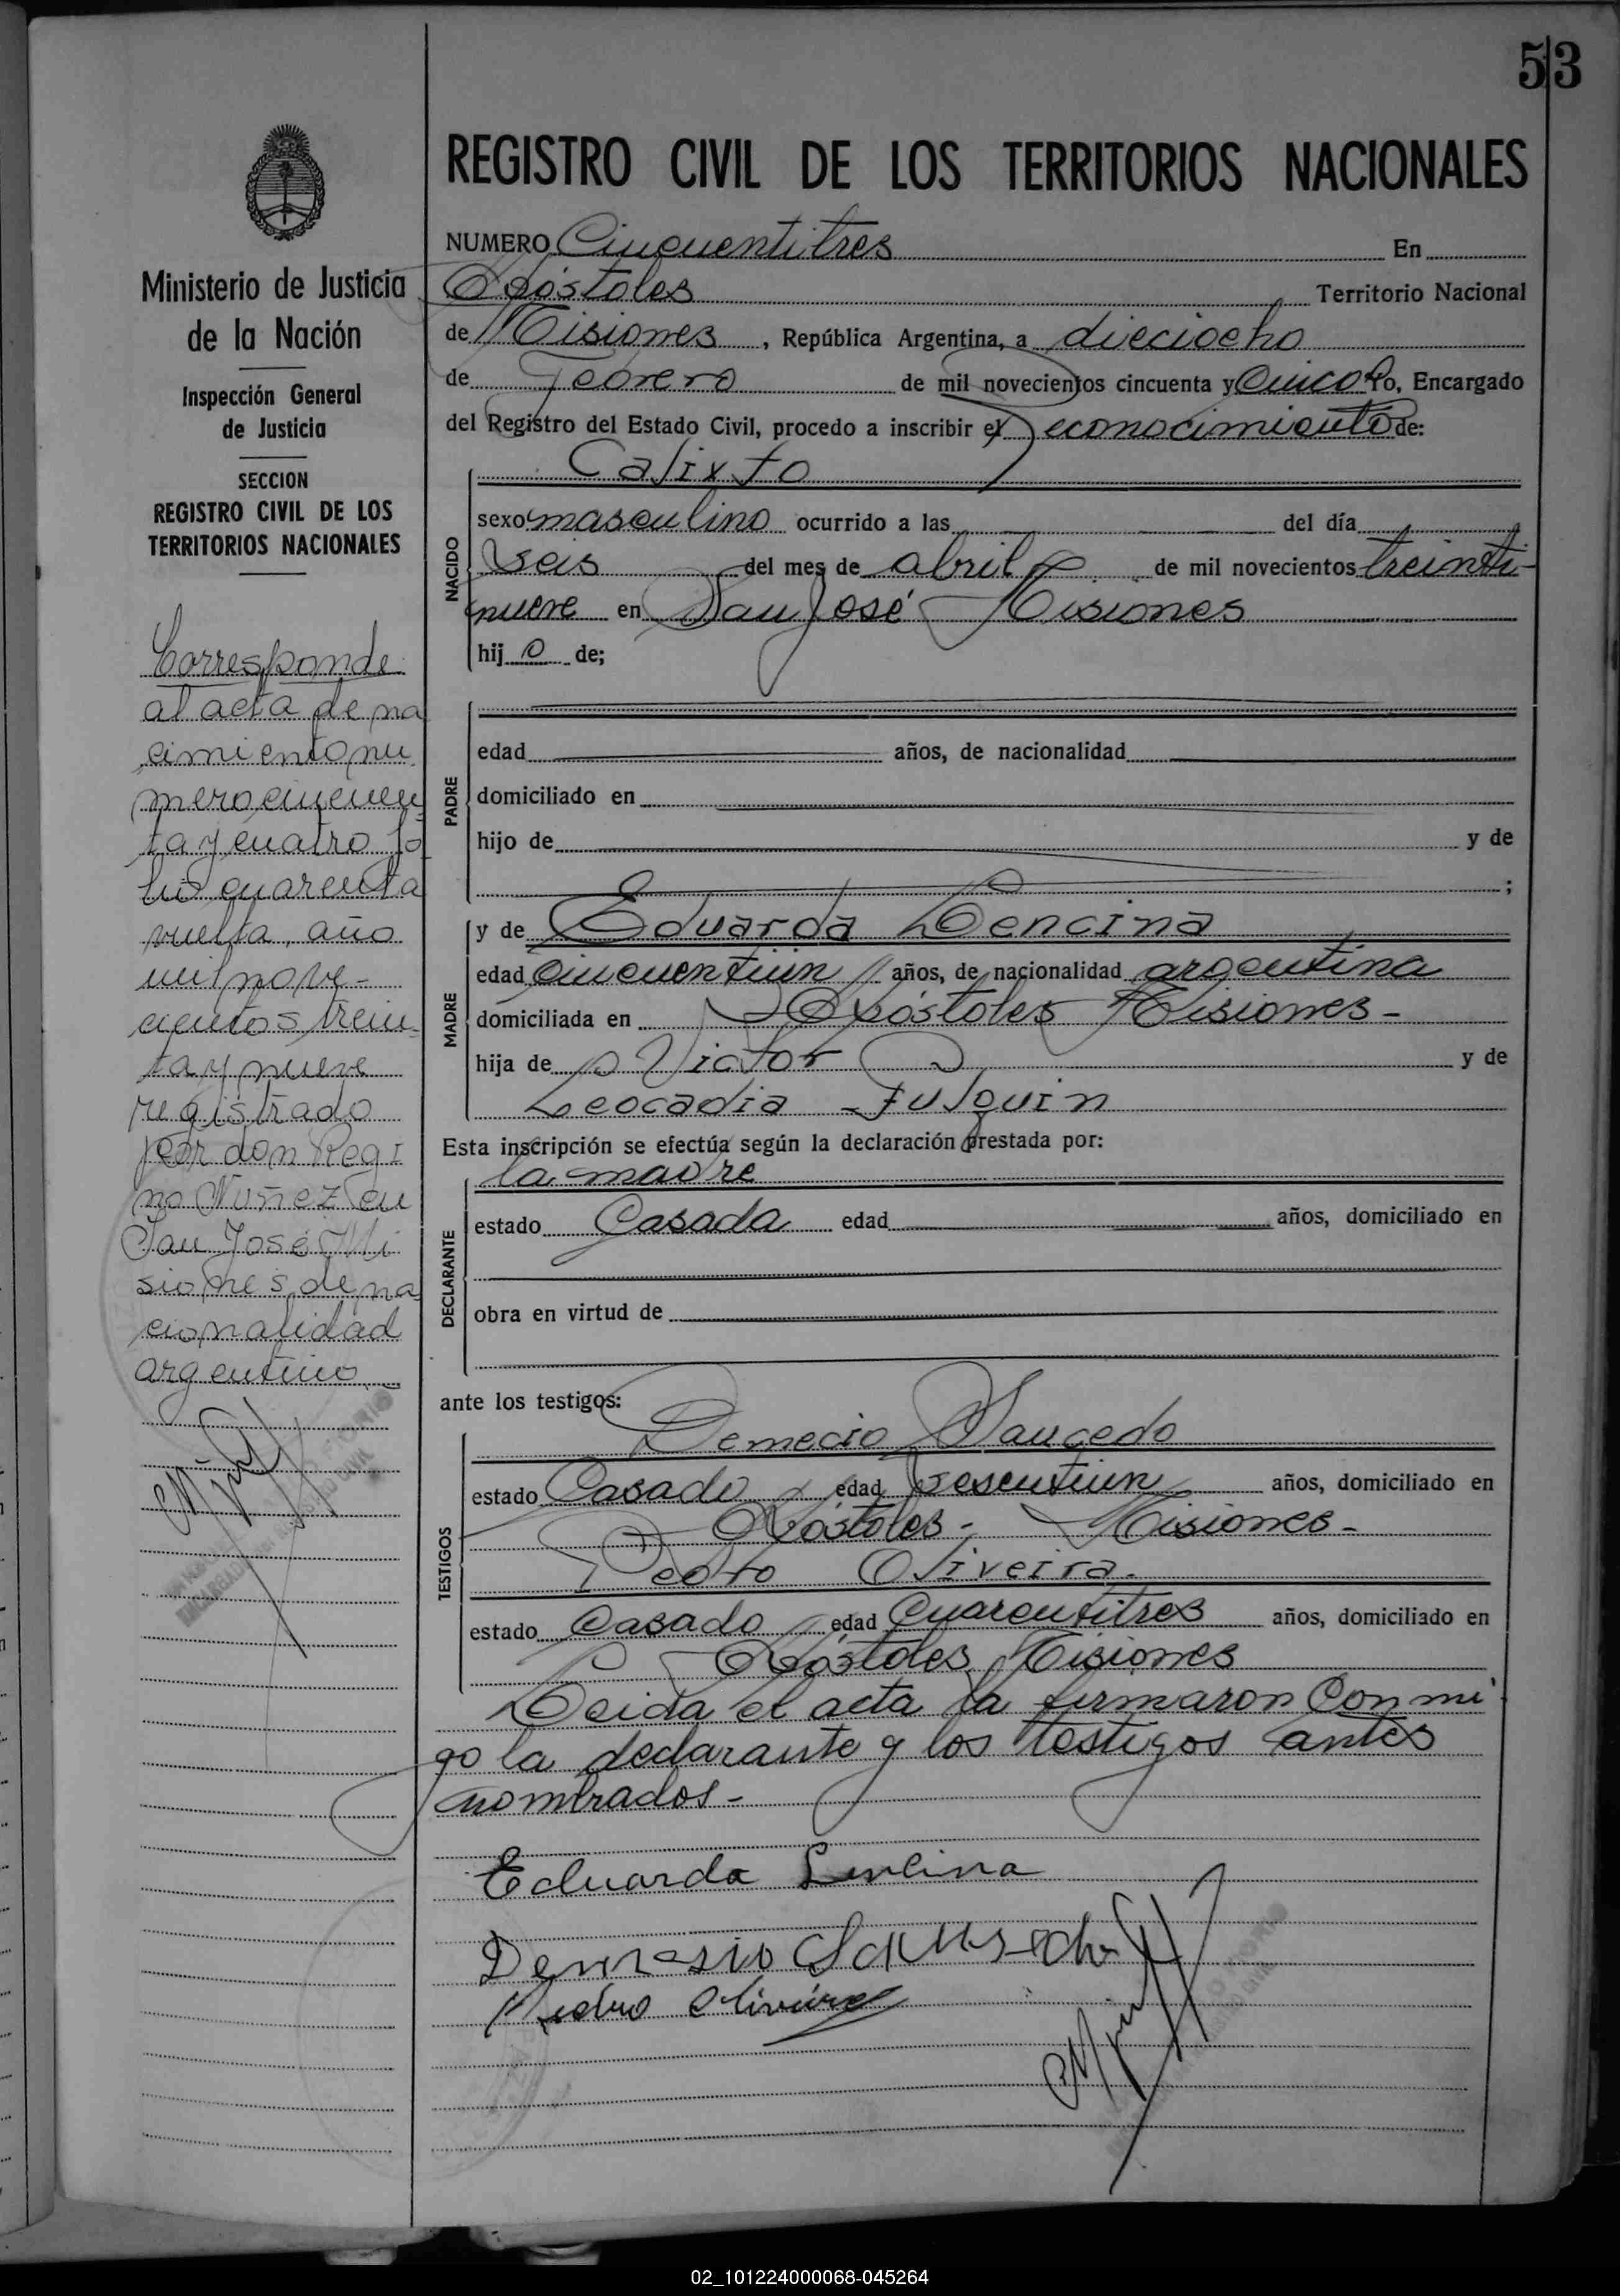 53
REGISTRO CIVIL DE LOS TERRITORIOS NACIONALES
Ministerio de Justicia
de la Nación
Inspección General
de Justicia
SECCION
REGISTRO CIVIL DE LOS
TERRITORIOS NACIONALES
Corresponde
al acta de na
cimiento nu
mero cincuen
ta y cuatro fo
lio cuarenta
vuelta, año
mil nove-
cientos trein
ta y nueve
registrado
por don Regi
no Nuñez en
San José Mi
siones, de na
cionalidad
argentino
NUMERO Cincuentitres En
Apóstoles Territorio Nacional
de Misiones, República Argentina, a dieciocho
de Febrero de mil novecientos cincuenta y Cinco Yo, Encargado
del Registro del Estado Civil, procedo a inscribir el Reconocimiento de:
Calixto
NACIDO
sexo masculino ocurrido a las del día
seis del mes de abril de mil novecientos treinti-
nueve en San José Misiones
hij o de;
PADRE
edad años, de nacionalidad
domiciliado en
hijo de y de
;
MADRE
y de Eduarda Lencina
edad cincuentiún años, de nacionalidad argentina
domiciliada en Apóstoles Misiones -
hija de Victor y de
Leocadia Fulquin
Esta inscripción se efectúa según la declaración prestada por:
la madre
DECLARANTE
estado Casada edad años, domiciliado en
obra en virtud de
ante los testigos:
Demecio Saucedo
TESTIGOS
estado Casado edad sesentiun años, domiciliado en
Apóstoles - Misiones -
Pedro Oliveira.
estado Casado edad Cuarentitres años, domiciliado en
Apóstoles Misiones
Leida el acta la firmaron Con mi
go la declarante y los testigos antes
nombrados -
Eduarda Lencina
Pedro
02_101224000068-045264